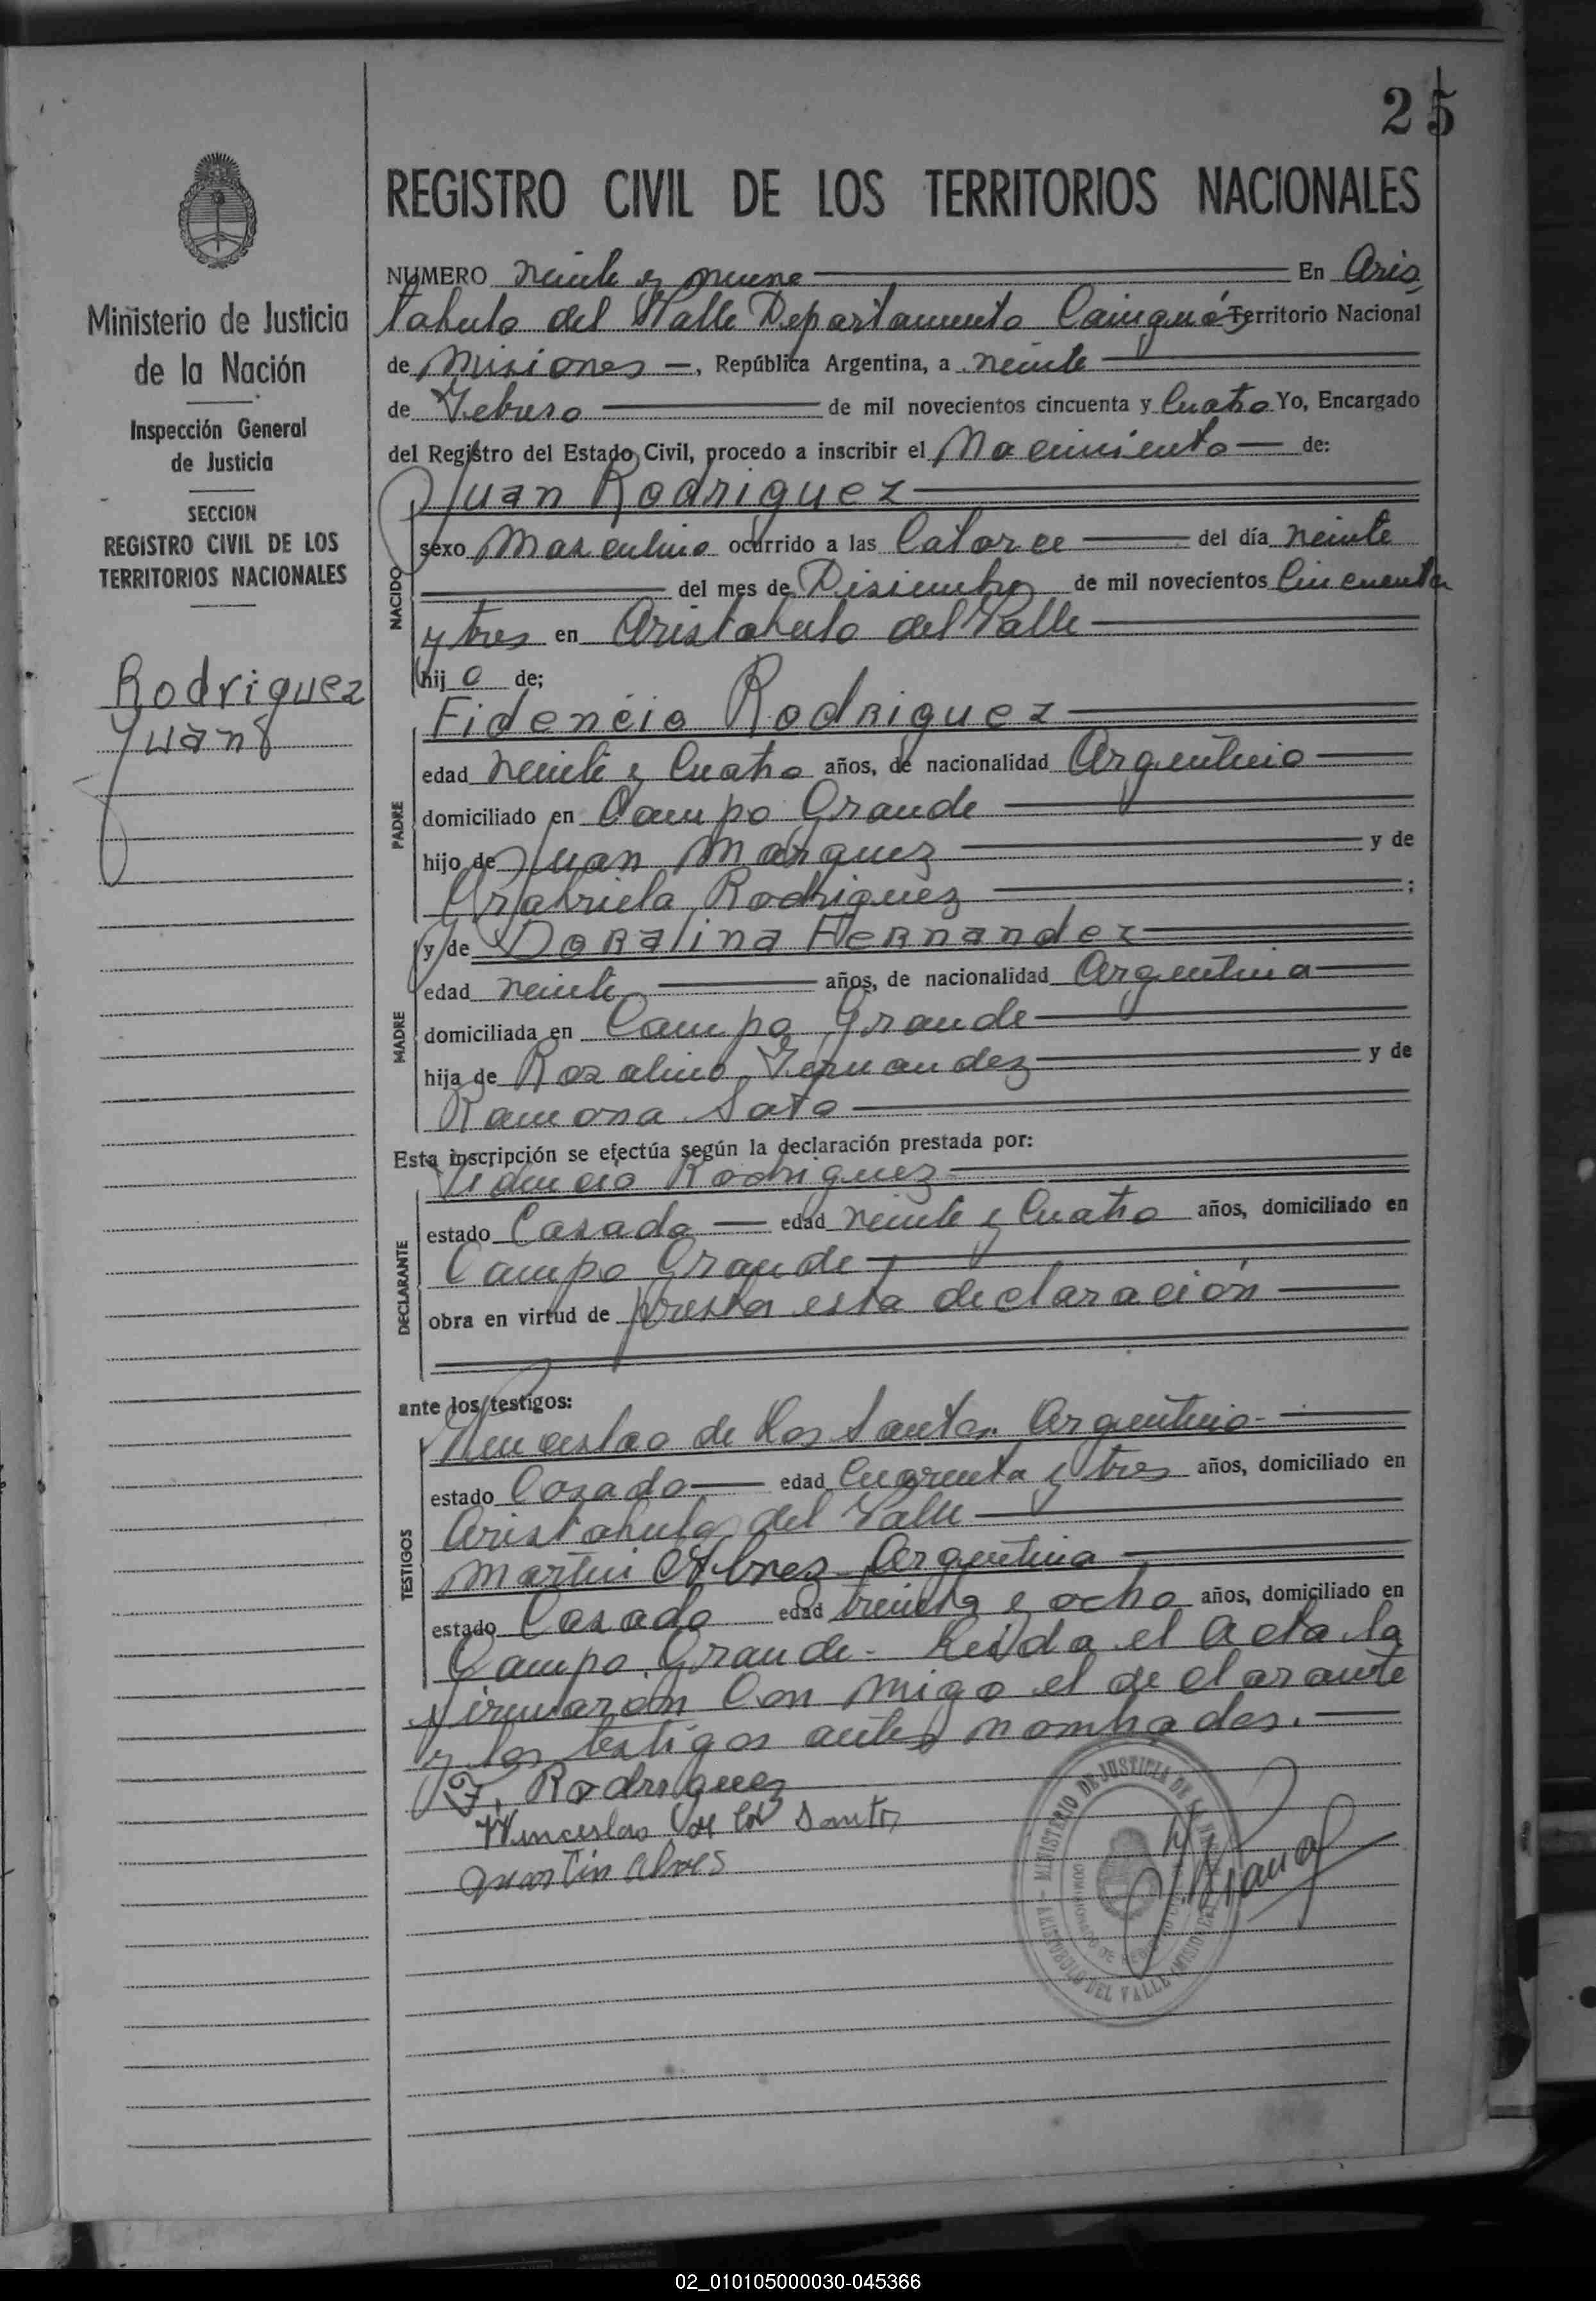 25
REGISTRO CIVIL DE LOS TERRITORIOS NACIONALES
Ministerio de Justicia
de la Nación
Inspección General
de Justicia
SECCION
REGISTRO CIVIL DE LOS
TERRITORIOS NACIONALES
Rodriguez
Juan
NUMERO veinte y nueve En Aris
tabulo del Valle Departamento Cainguás Territorio Nacional
de Misiones —, República Argentina, a veinte
de Febrero de mil novecientos cincuenta y Cuatro Yo, Encargado
del Registro del Estado Civil, procedo a inscribir el Nacimiento de:
Juan Rodriguez
NACIDO
sexo Masculino ocurrido a las Catorce del día veinte
del mes de Disiembre de mil novecientos Cincuenta
y tres en Aristabulo del Valle
hijo de;
Fidencio Rodriguez
PADRE
edad veinte y Cuatro años, de nacionalidad Argentino
domiciliado en Campo Grande
hijo de Juan Marquez y de
Grabriela Rodriguez ;
y de Doralina Fernandez
MADRE
edad veinte años, de nacionalidad Argentina
domiciliada en Campo Grande
hija de Rosalino Fernandez y de
Ramona Soto
Esta inscripción se efectúa según la declaración prestada por:
Fidencio Rodriguez
DECLARANTE
estado Casado — edad veinte y Cuatro años, domiciliado en
Campo Grande
obra en virtud de prestar esta declaración
ante los testigos:
Wenceslao de Los Santos Argentino
TESTIGOS
estado Casado edad Cuarenta y tres años, domiciliado en
Aristabulo del Valle
Martin Alvez Argentino
estado Casado edad treinta y ocho años, domiciliado en
Campo Grande - Leida el Acta la
firmaron Con migo el declarante
y los testigos antes nombrados.
F. Rodriguez
Wenceslao de los Santos
Martin Alves
MINISTERIO DE JUSTICIA DE LA NACION
ARISTOBULO DEL VALLE (MISIONES)
02_010105000030-045366